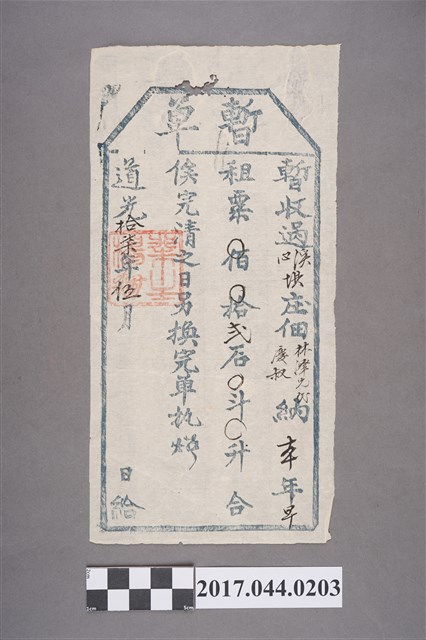 暫單
暫收過溪口垻庄佃林澤光慶叔納本年早
租粟〇佰〇拾弍石〇斗〇升 合
俟完清之日另換完單執炤
道光拾柒年伍月 日給
2017.044.0203